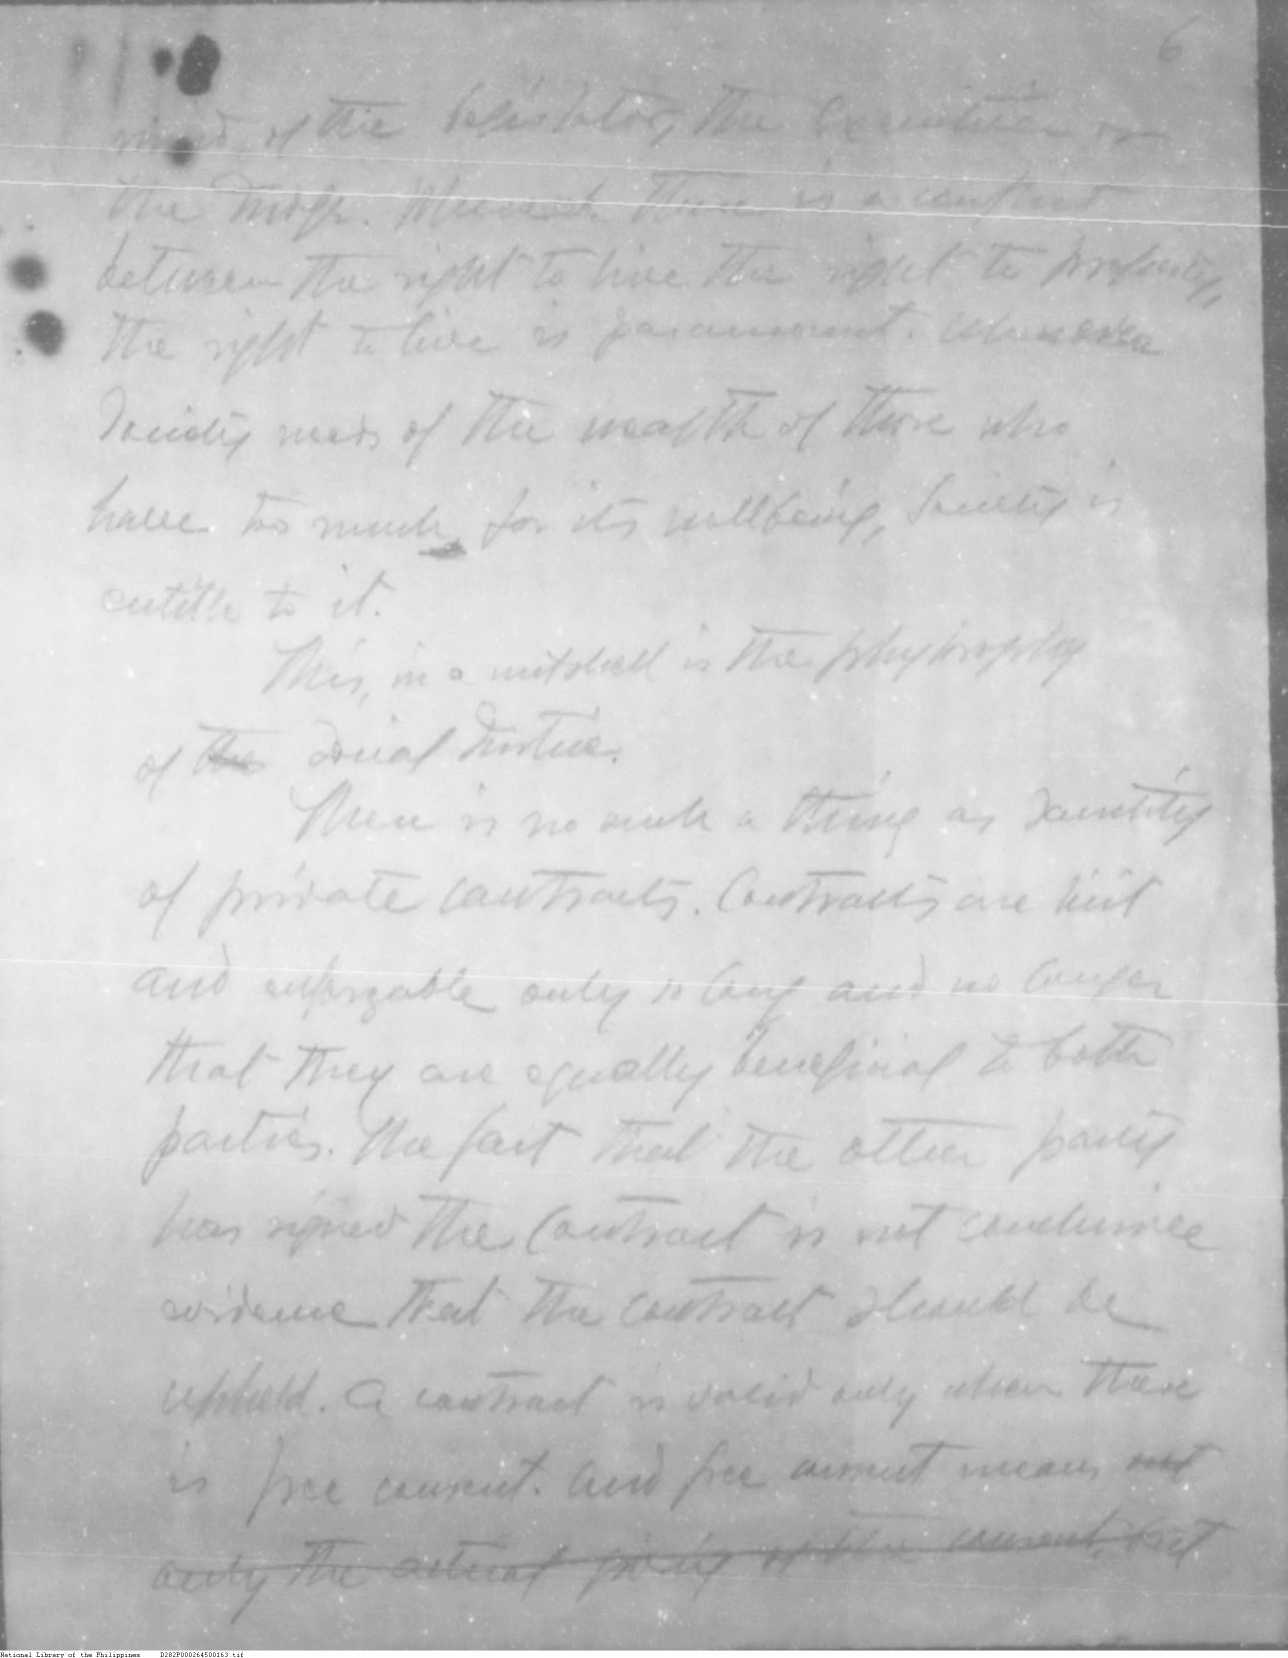 6
mind of the legislator, the Executive or
the Judge. Whenever there is a conflict
between the right to live the right to property,
the right to live is paramount. Whenever
Society needs of the wealth of those who
have too much, for its wellbeing, Society is
entitle to it.
This, in a nutshell is the phylosophy
of the Social Justice.
There is no such a thing as Sanctity
of private contracts. Contracts are
and enforzable only so long and no longer
that they are equally beneficial to both
parties. The fact that the other party
has signed the Contract is not conclusive
evidence that the contract should be
upheld. A contract is valid only when there
is free consent. And free consent means not
only the actual giving of the consent, but
National Library of the Philippines D282P000264500163.tif